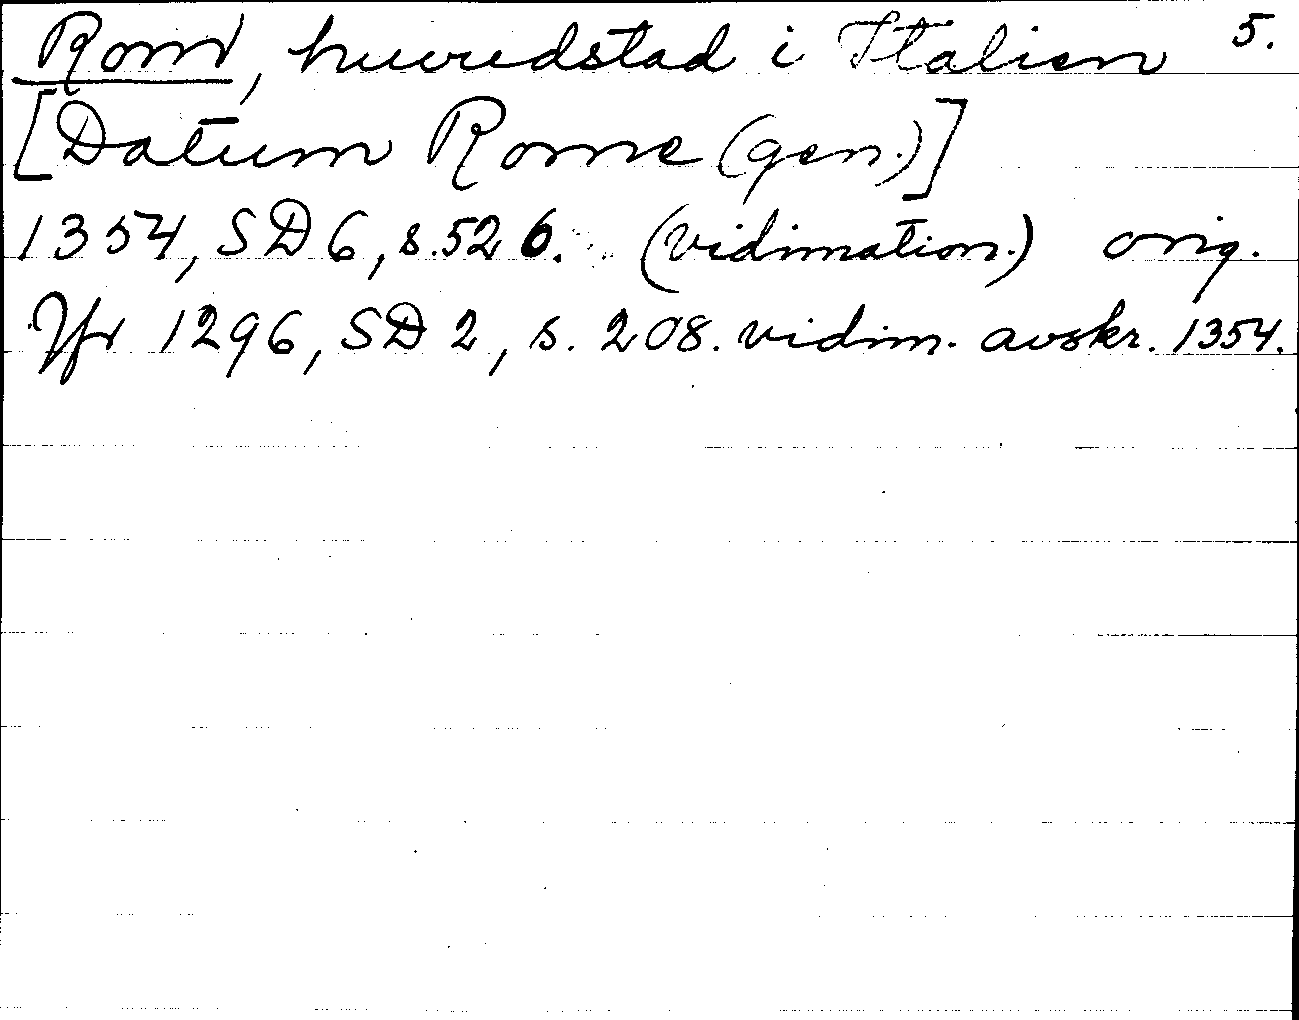 Rom, huvudstad i Italien 5.
[Datum Rome (gen.)]
1354, SD 6, s. 526. (vidimation.) orig.
Jfr 1296, SD 2, s. 208. vidim. avskr. 1354.